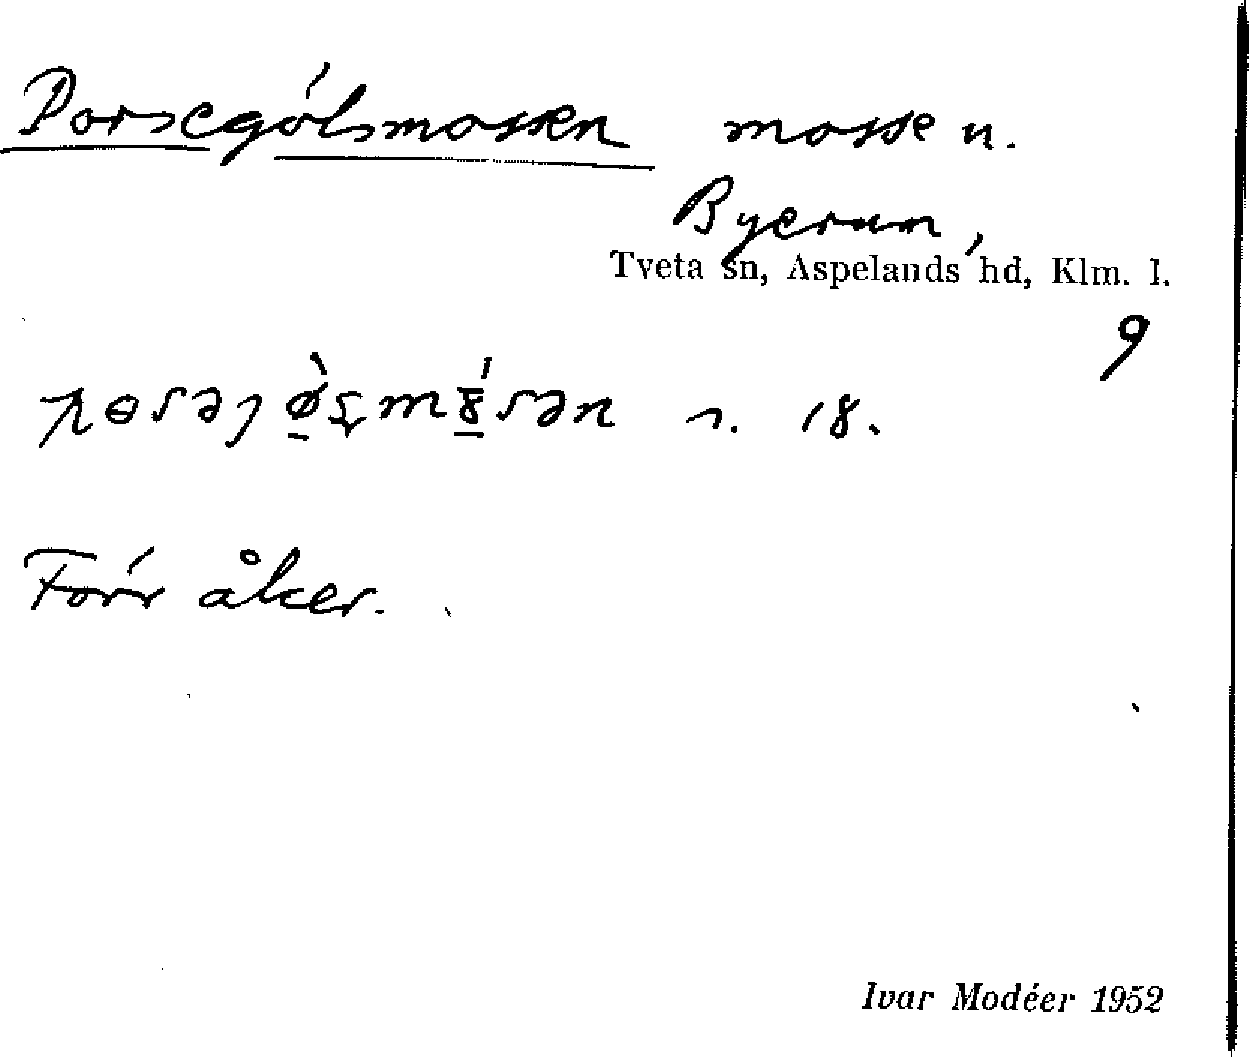 Porsególsmossen mosse n.
Byerum,
Tveta sn, Aspelands hd, Klm. l.
9
s. 18.
Förr åker.
Ivar Modéer 1952